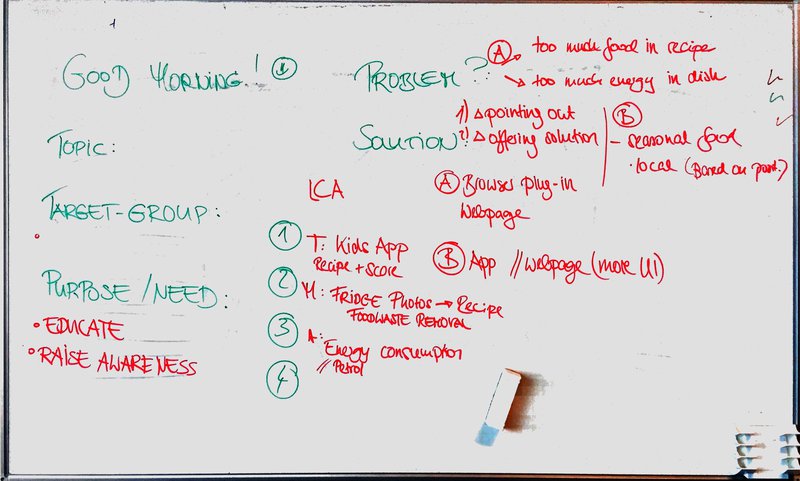 GOOD MORNING!
TOPIC:
TARGET-GROUP:
PURPOSE/NEED:
• EDUCATE
• RAISE AWARENESS
LCA
1 T: Kids App
Recipe + Score
2 M: FRIDGE PHOTOS → Recipe
FOODWASTE REMOVAL
3 A: Energy consumption
// Petrol
4
PROBLEM?:
A too much food in recipe
↘ too much energy in dish
SOLUTION:
1) △ pointing out
2) △ offering solution
B
– seasonal food
· local (Based on
A Browser plug-in
Webpage
B App // Webpage (more UI)